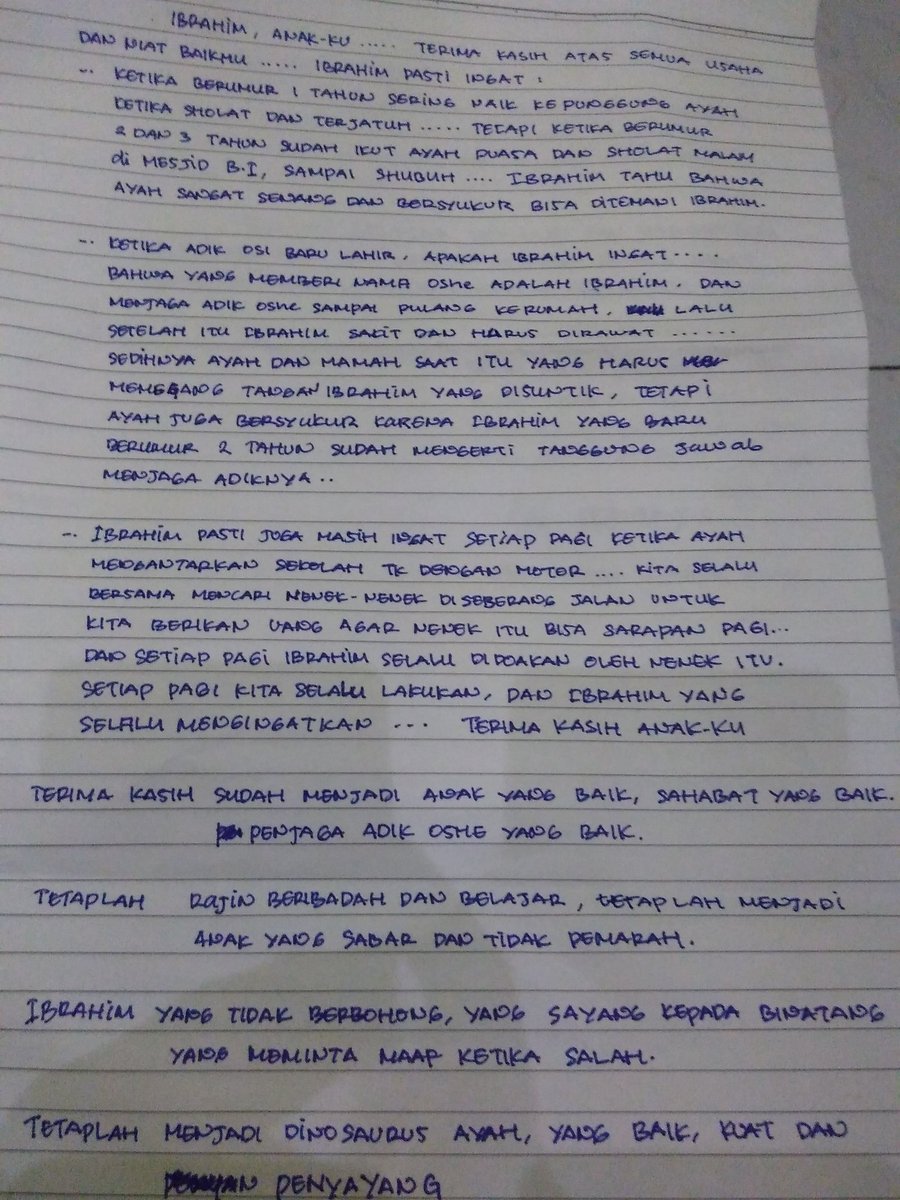 IBRAHIM, ANAK-KU ..... TERIMA KASIH ATAS SEMUA USAHA
DAN NIAT BAIKMU ..... IBRAHIM PASTI INGAT :
-. KETIKA BERUMUR 1 TAHUN SERING NAIK KEPUNGGUNG AYAH
KETIKA SHOLAT DAN TERJATUH ..... TETAPI KETIKA BERUMUR
2 DAN 3 TAHUN SUDAH IKUT AYAH PUASA DAN SHOLAT MALAM
di MESJID B.I, SAMPAI SHUBUH .... IBRAHIM TAHU BAHWA
AYAH SANGAT SENANG DAN BERSYUKUR BISA DITEMANI IBRAHIM.
-. KETIKA ADIK OSI BARU LAHIR, APAKAH IBRAHIM INGAT ....
BAHWA YANG MEMBERI NAMA OSHE ADALAH IBRAHIM. DAN
MENJAGA ADIK OSHE SAMPAI PULANG KERUMAH, LALU
SETELAH ITU IBRAHIM SAKIT DAN HARUS DIRAWAT ......
SEDIHNYA AYAH DAN MAMAH SAAT ITU YANG HARUS
MEMEGANG TANGAN IBRAHIM YANG DISUNTIK, TETAPI
AYAH JUGA BERSYUKUR KARENA IBRAHIM YANG BARU
BERUMUR 2 TAHUN SUDAH MENGERTI TANGGUNG JAWAB
MENJAGA ADIKNYA ..
-. IBRAHIM PASTI JUGA MASIH INGAT SETIAP PAGI KETIKA AYAH
MENGANTARKAN SEKOLAH TK DENGAN MOTOR .... KITA SELALU
BERSAMA MENCARI NENEK-NENEK DI SEBERANG JALAN UNTUK
KITA BERIKAN UANG AGAR NENEK ITU BISA SARAPAN PAGI...
DAN SETIAP PAGI IBRAHIM SELALU DIDOAKAN OLEH NENEK ITU.
SETIAP PAGI KITA SELALU LAKUKAN, DAN IBRAHIM YANG
SELALU MENGINGATKAN ... TERIMA KASIH ANAK-KU
TERIMA KASIH SUDAH MENJADI ANAK YANG BAIK, SAHABAT YANG BAIK.
PENJAGA ADIK OSHE YANG BAIK.
TETAPLAH RAJIN BERIBADAH DAN BELAJAR, TETAPLAH MENJADI
ANAK YANG SABAR DAN TIDAK PEMARAH.
IBRAHIM YANG TIDAK BERBOHONG, YANG SAYANG KEPADA BINATANG
YANG MEMINTA MAAP KETIKA SALAH.
TETAPLAH MENJADI DINOSAURUS AYAH, YANG BAIK, KUAT DAN
PENYAYANG